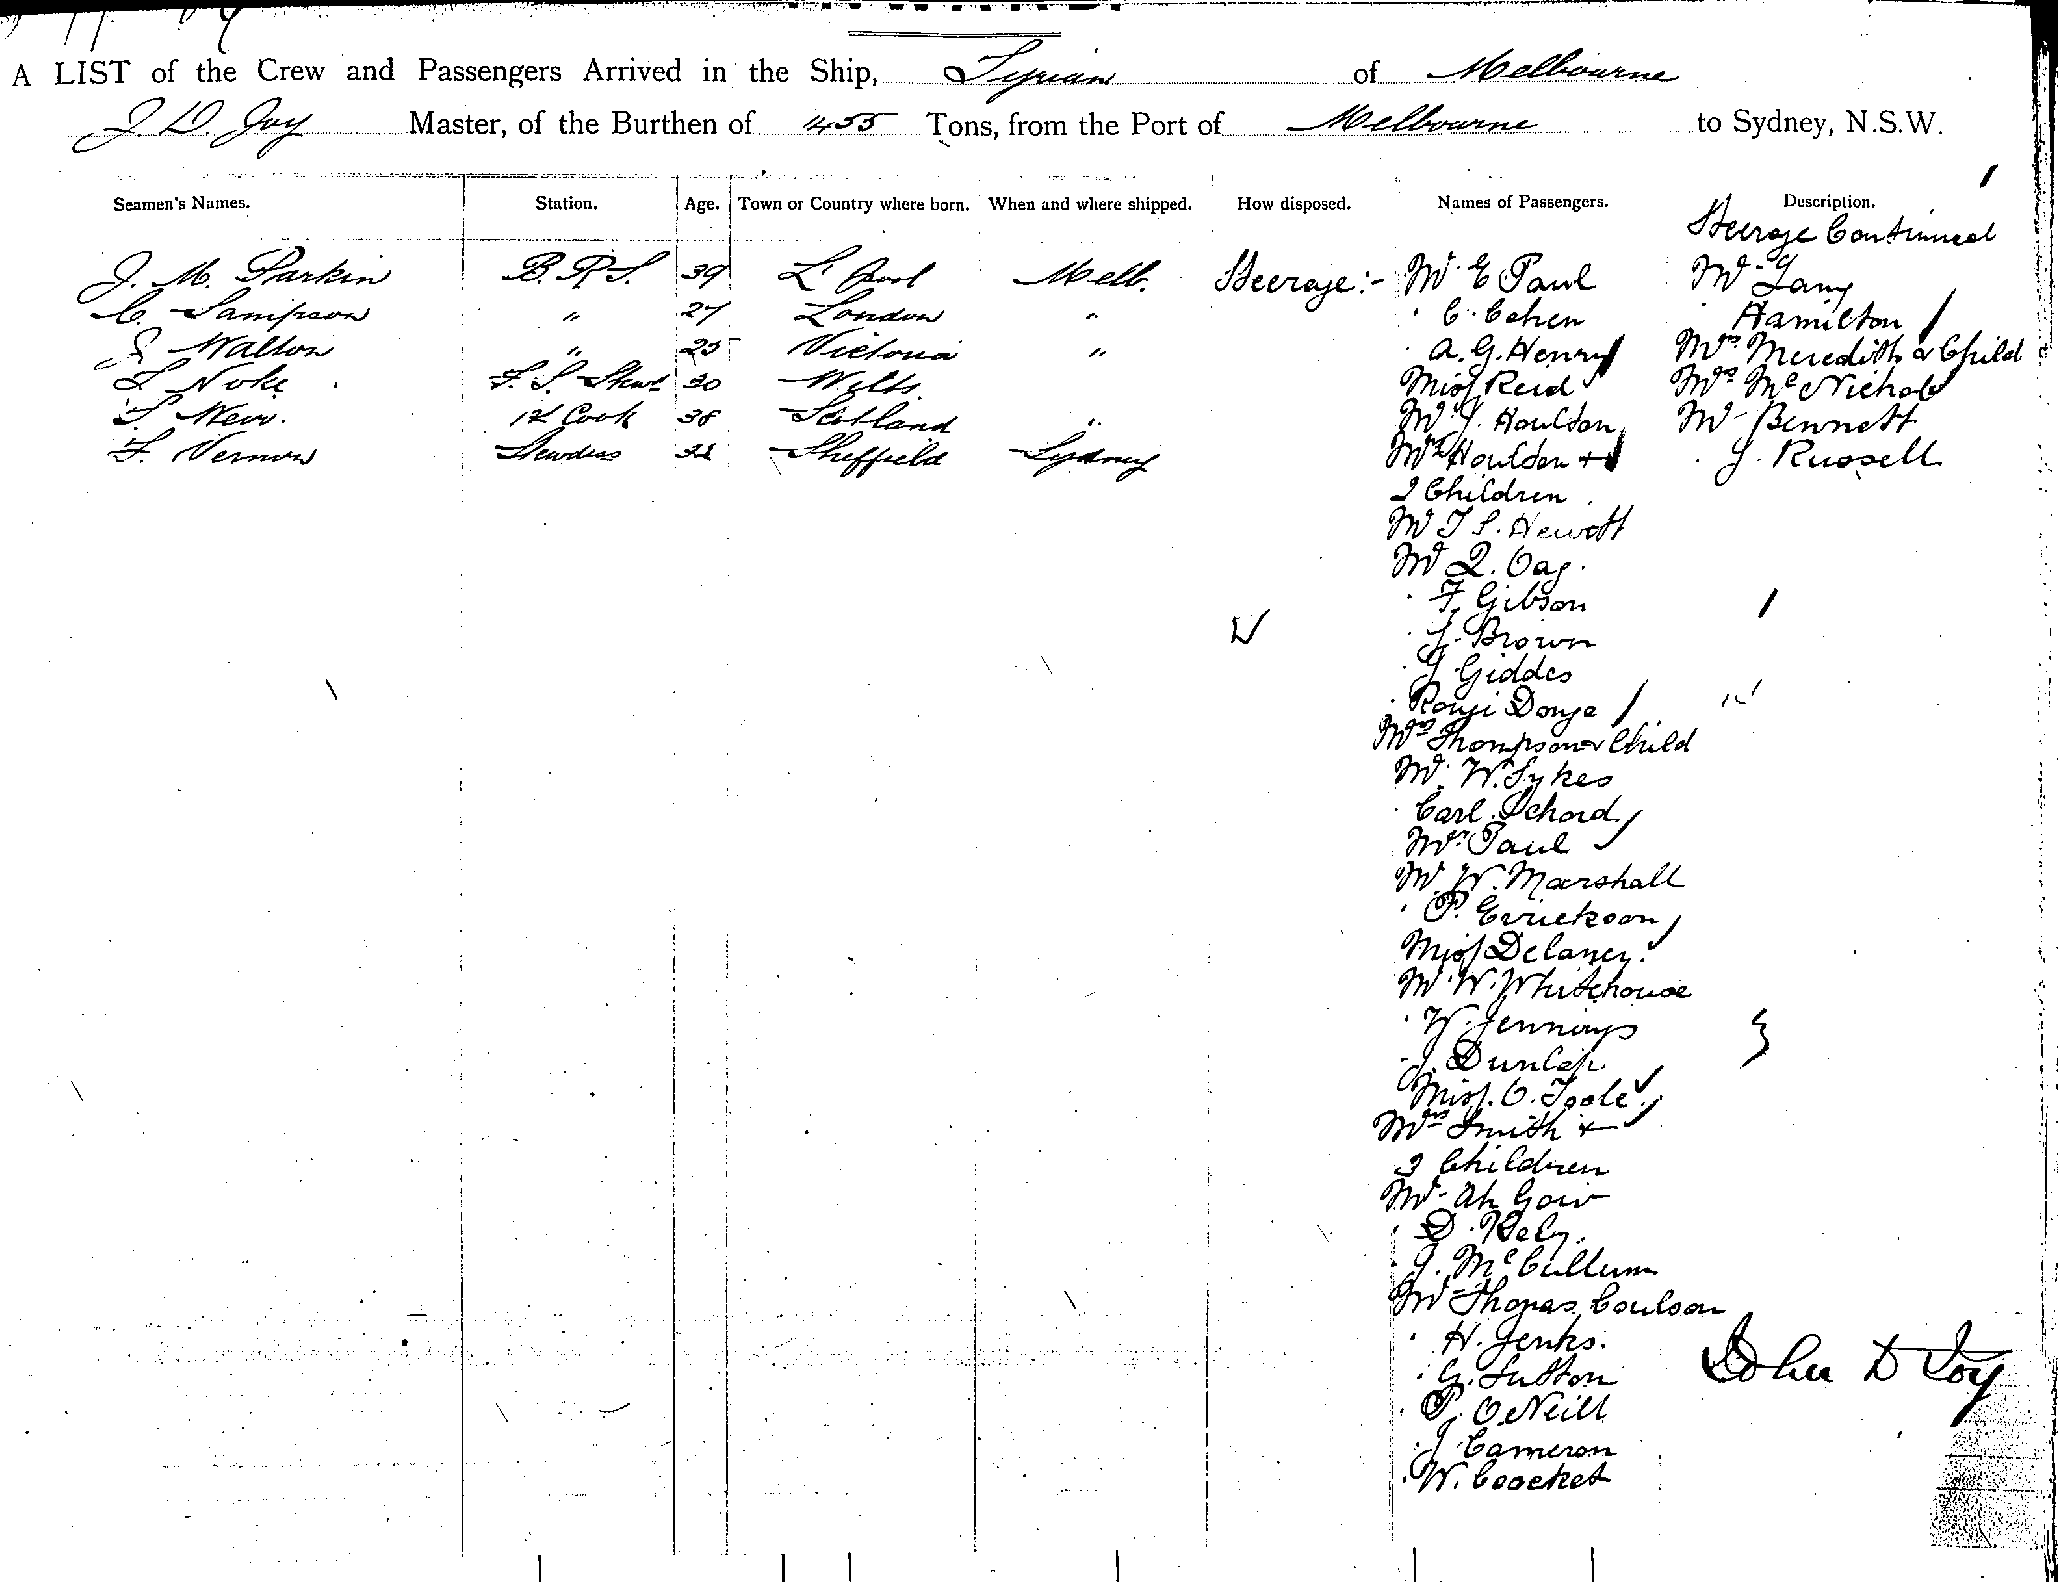 A LIST of the Crew and Passengers Arrived in the Ship, Syrian of Melbourne
J D. Joy Master, of the Burthen of 1455 Tons, from the Port of Melbourne to Sydney, N.S.W.
Seamen's Names. Station. Age. Town or Country where born. When and where shipped. How disposed. Names of Passengers. Description.
J. M. Parkin B.R.S. 39 L'Pool Melb.
C. Sampson " 27 London "
J. Walton " 25 Victoria "
Noke 30 Wilts.
1st Cook 38 Scotland "
F. Vernon Stewdess Sheffield Sydney
Steerage:-
Mr E Paul
C. Cohen
A. G. Henry
Miss Reid
Mr J. Houlson
Mrs Houlson +
2 Children
Mr T S. Hewett
Mr Oag.
F. Gibson
J. Brown
J Giddes
Mrs Thompson & Child
Mr W. Sykes
Carl Schord
Mrs Paul
Mr W. Marshall
P. Errickson
Miss Delaney.
Mr W. Whitehouse
W. Jennings
J. Dunlop.
Miss. O. Toole
Mrs Smith +
2 Children
Mr Ah Gow
D.
J. McCullum
Mr Thomas Coulson
H. Jenks.
G. Sutton
P. O'Neill
J Cameron
W. Coocket
Steerage Continued
Mr Lang
Hamilton
Mrs Meredith & Child
Mrs McNichol
Mr Bennett
J. Russell
John D Joy